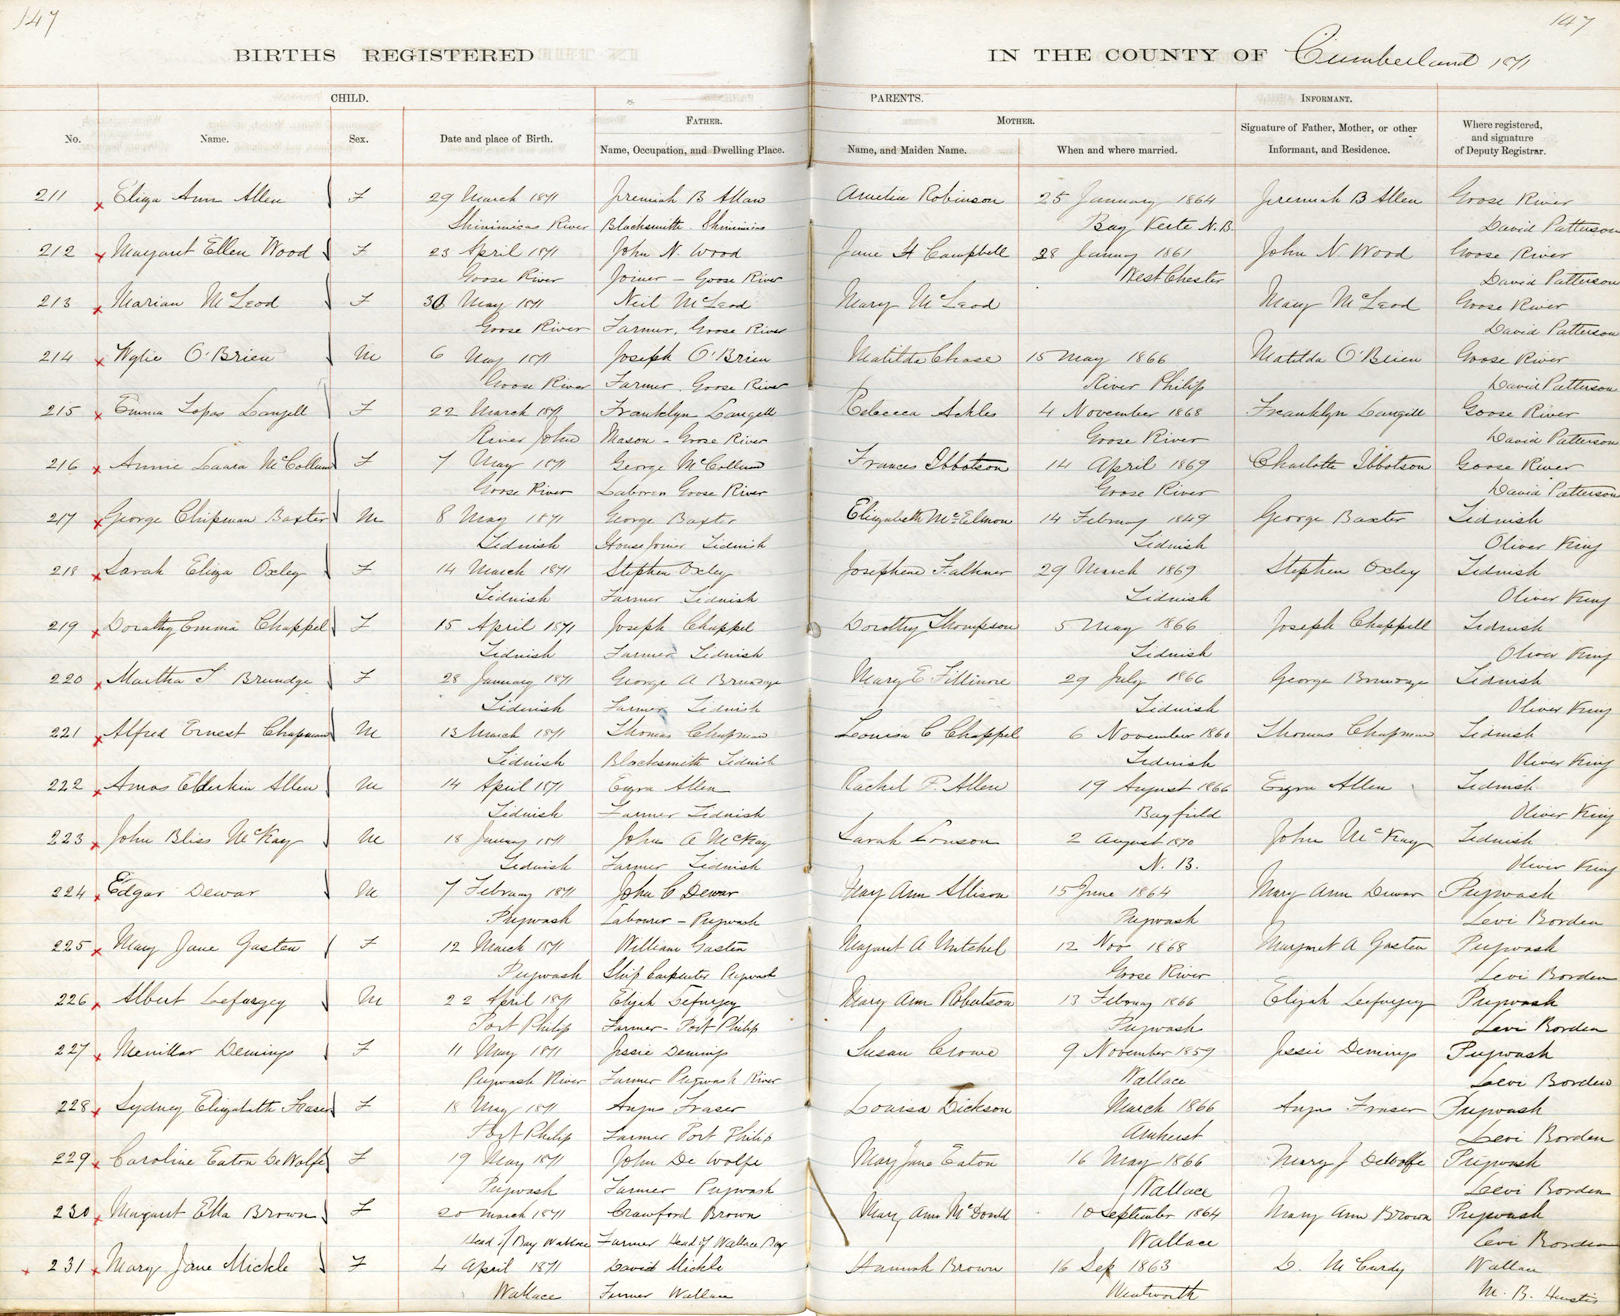 147
147
BIRTHS REGISTERED
IN THE COUNTY OF Cumberland 1871
CHILD.
PARENTS.
INFORMANT.
No.
Name.
Sex.
Date and place of Birth.
FATHER.
Name, Occupation, and Dwelling Place.
MOTHER.
Name, and Maiden Name.
When and where married.
Signature of Father, Mother, or other
Informant, and Residence.
Where registered,
and signature
of Deputy Registrar.
211 Eliza Ann Allen F 29 March 1871 Jeremiah B Allan Amelia Robinson 25 January 1864 Jeremiah B Allen Goose River
Shinimicas River Blacksmith Shinimicas Bay Verte N.B. David Patterson
212 Margaret Ellen Wood F 23 April 1871 John N. Wood Jane H Campbell 28 January 1861 John N. Wood Goose River
Goose River Joiner - Goose River West Chester David Patterson
213 Marian McLeod F 30 May 1871 Neil McLeod Mary McLeod Mary McLeod Goose River
Goose River Farmer, Goose River David Patterson
214 Wylie O'Brien M 6 May 1871 Joseph O'Brien Matilda Chase 15 May 1866 Matilda O'Brien Goose River
Goose River Farmer. Goose River River Philip David Patterson
215 Emma Langell F 22 March 1871 Franklyn Langell Rebecca Ackles 4 November 1868 Franklyn Langill Goose River
River John Mason - Goose River Goose River David Patterson
216 Annie Laura McCollum F 7 May 1871 George McCollum Frances Ibbotson 14 April 1869 Charlotte Ibbotson Goose River
Goose River Laborer Goose River Goose River David Patterson
217 George Chipman Baxter M 8 May 1871 George Baxter Elizabeth McElmon 14 February 1849 George Baxter Tidnish
Tidnish House Joiner Tidnish Tidnish Oliver King
218 Sarah Eliza Oxley F 14 March 1871 Stephen Oxley Josephine Falkner 29 March 1869 Stephen Oxley Tidnish
Tidnish Farmer Tidnish Tidnish Oliver King
219 Dorathy Emma Chappel F 15 April 1871 Joseph Chappel Dorothy Thompson 5 May 1866 Joseph Chappell Tidnish
Tidnish Farmer Tidnish Tidnish Oliver King
220 Martha J Brundge F 28 January 1871 George A Brundge Mary E Fillinore 29 July 1866 George Brundge Tidnish
Tidnish Farmer Tidnish Tidnish Oliver King
221 Alfred Ernest Chapman M 13 March 1871 Thomas Chapman Louisa C Chappel 6 November 1860 Thomas Chapman Tidnish
Tidnish Blacksmith Tidnish Tidnish Oliver King
222 Amos Elderkin Allen M 14 April 1871 Ezra Allen Rachel P. Allen 19 August 1866 Ezra Allen Tidnish
Tidnish Farmer Tidnish Bayfield Oliver King
223 John Bliss McKay M 18 January 1871 John A McKay Sarah 2 August 1870 John McKay Tidnish
Tidnish Farmer Tidnish N. B. Oliver King
224 Edgar Dewar M 7 February 1871 John C Dewar Mary Ann Allison 15 June 1864 Mary Ann Dewar Pugwash
Pugwash Labourer - Pugwash Pugwash Levi Borden
225 Mary Jane Gasten F 12 March 1871 William Gasten Margaret A Mitchel 12 Nov 1868 Margaret A Gasten Pugwash
Pugwash Ship Carpenter Pugwash Goose River Levi Borden
226 Albert Lefurgey M 22 April 1871 Elijah Lefurgey Mary Ann Robertson 13 February 1866 Elijah Lefurgey Pugwash
Port Philip Farmer - Port Philip Pugwash Levi Borden
227 Demings F 11 May 1871 Jessie Demings Susan Crowe 9 November 1859 Jessie Demings Pugwash
Pugwash River Farmer Pugwash River Wallace Levi Borden
228 Sydney Elizabeth Fraser F 18 May 1871 Angus Fraser Louisa Dickson March 1866 Angus Fraser Pugwash
Port Philip Farmer Port Philip Amherst Levi Borden
229 Caroline Eaton DeWolfe F 19 May 1871 John DeWolfe Mary Jane Eaton 16 May 1866 Mary J DeWolfe Pugwash
Pugwash Farmer Pugwash Wallace Levi Borden
230 Margaret Etta Brown F 20 March 1871 Crawford Brown Mary Ann McDonld 10 September 1864 Mary Ann Brown Pugwash
Head of Bay Wallace Farmer Head of Wallace Bay Wallace Levi Borden
231 Mary Jane Mickle F 4 April 1871 David Mickle Hannah Brown 16 Sep 1863 D. McCurdy Wallace
Wallace Farmer Wallace Wentworth M. B. Huestis